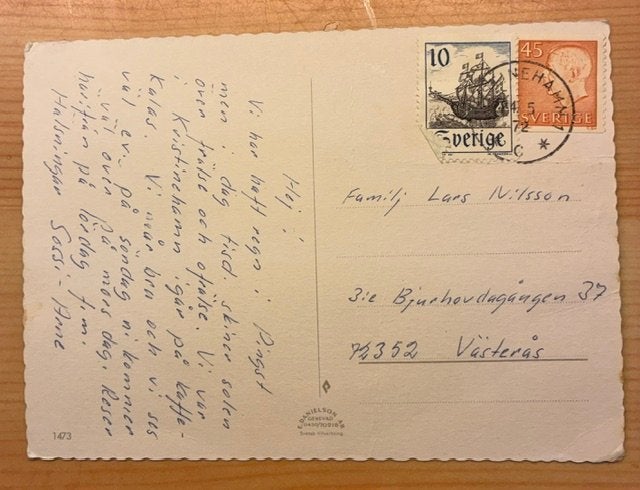 Hej!
Vi har haft regn i Pingst
men i dag tisd. skiner solen
över frälse och ofrälse. Vi var
i Kristinehamn igår på kaffe-
kalas. Vi mår bra och vi ses
väl ev. på söndag ni kommer
väl över på mors dag. Reser
härifrån på lördag f.m.
Hälsningar Sossi - Arne
10
Sverige
45
SVERIGE
NEHAMN 1
5
72
C *
Familj Lars Nilsson
3:e Bjurhovdagången 37
72352 Västerås
E. DANIELSON AB
GENEVAD
0430/70218
Svensk tillverkning
1473